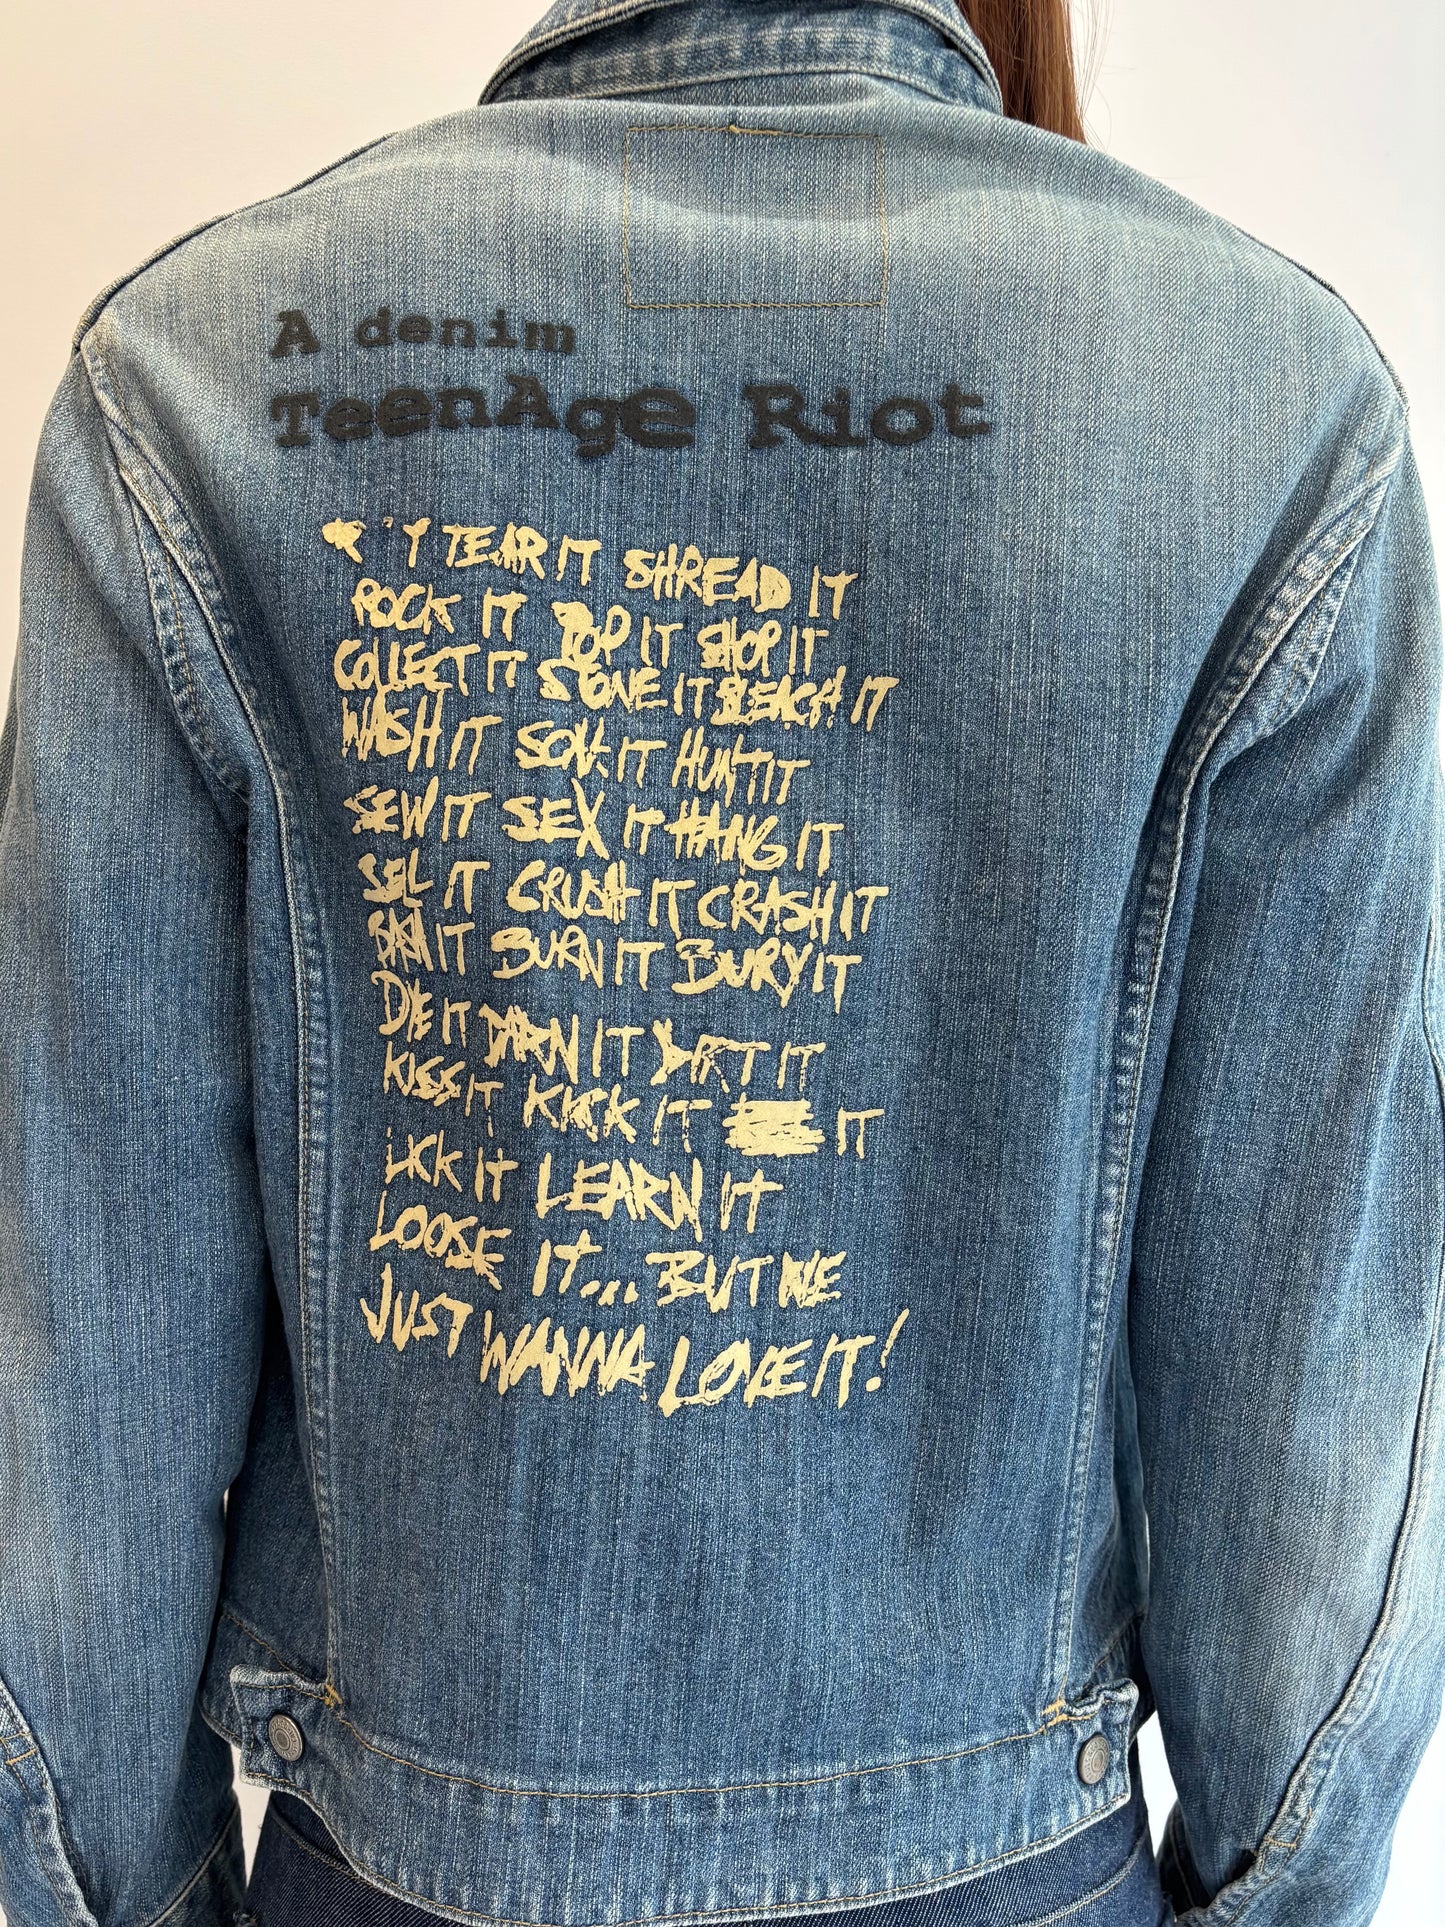 A denim
TeenAge Riot
TEAR IT SHREAD IT
ROCK IT POP IT SHOP IT
COLLECT IT STONE IT BLEACH IT
WASH IT SOAK IT HUNT IT
SEW IT SEX IT HANG IT
SELL IT CRUSH IT CRASH IT
IT BURN IT BURY IT
DYE IT DARN IT DIRT IT
KISS IT KICK IT IT
LICK IT LEARN IT
LOOSE IT... BUT WE
JUST WANNA LOVE IT!